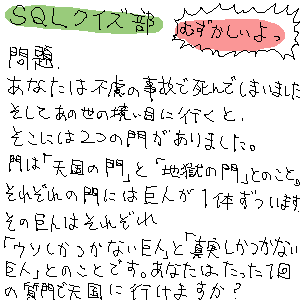 SQLクイズ部
むずかしいよっ
問題.
あなたは不慮の事故で死んでしまいました
そしてあの世の境い目に行くと、
そこには2つの門がありました。
門は「天国の門」と「地獄の門」とのこと。
それぞれの門には巨人が1体ずついます
その巨人はそれぞれ
「ウソしかつかない巨人」と「真実しかつかない
巨人」とのことです。あなたはたった1回
の質問で天国に行けますか?